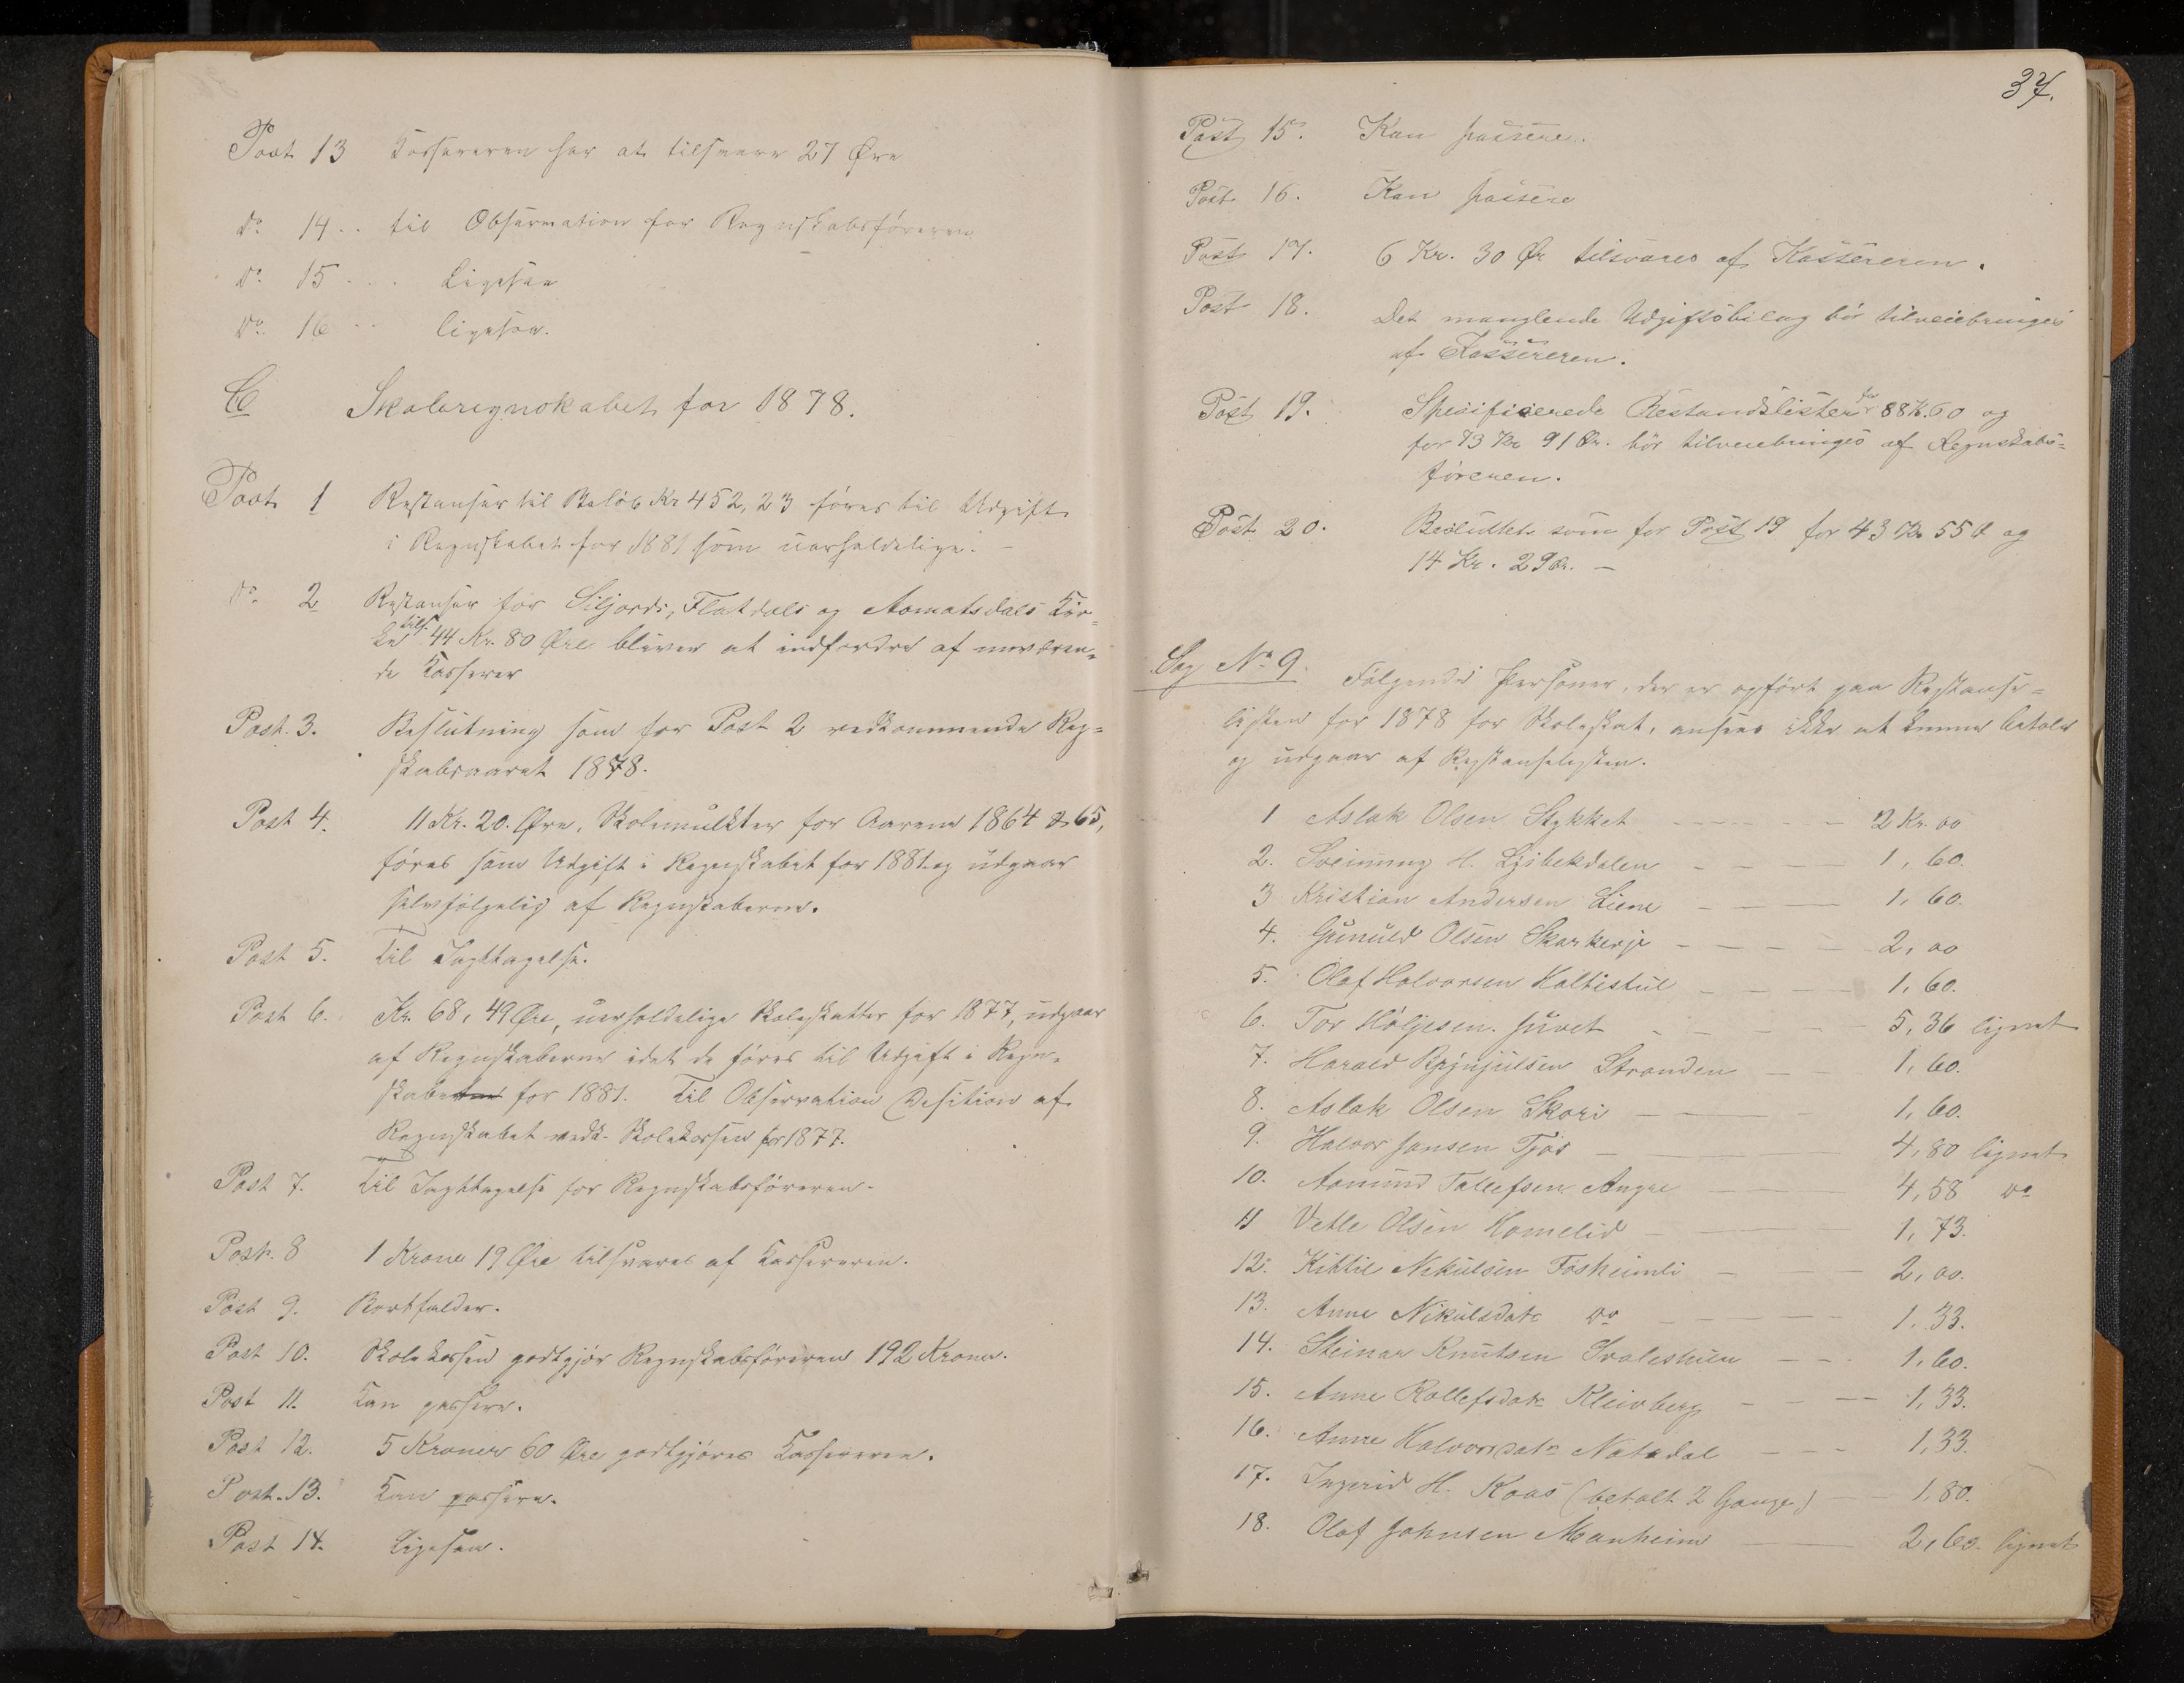 Post 13 Kassereren har at tilsvare 27 Øre
do 14 .. til Observation for Regnskabsføreren
do 15 ... Ligesaa
do 16 .. ligesaa.
C Skoleregnskabet for 1878.
Post 1 Restanser til Beløb Kr 452,23 føres til Udgift
i Regnskabet for 1881 som uerholdelige. –
do 2 Restanser for Siljords, Flatdals og Aamotsdals Kir-
ke tils. 44 Kr. 80 Øre bliver at indfordre af nuværen-
de Kasserer
Post. 3. Beslutning som for Post 2 vedkommende Reg-
skabsaaret 1878.
Post 4. 11 Kr. 20. Øre, Skolemulkter for Aarene 1864 & 65,
føres som Udgift i Regnskabet for 1881 og udgaar
selvfølgelig af Regnskaberne.
Post 5. Til Iagttagelse.
Post 6. Kr. 68, 49 Øre, uerholdelige Skoleskatter for 1877, udgaar
af Regnskaberne idet de føres til Udgift i Regn-
skabet for 1881. Til Observation Desition af
Regnskabet vedk. Skolekassen for 1877.
Post 7. Til Iagttagelse for Regnskabsføreren.
Post. 8 1 Krone 19 Øre tilsvares af Kassereren.
Post 9. Bortfalder.
Post 10. Skolekassen godtgjør Regnskabsføreren 192 Kroner.
Post 11. Kan passere.
Post 12. 5 Kroner 60 Øre godtgjøres Kassereren.
Post. 13. Kan passere.
Post 14. Ligesaa.
37.
Post 15. Kan passere.
Post 16. Kan passere
Post 17. 6 Kr. 30 Ør tilsvares af Kassereren.
Post 18. Det manglende Udgiftsbilag bør tilveiebringes
af Kassereren.
Post 19. Spesifiserede Restanslister for 88 K. 60 og
for 73 Kr 91 Ør. bør tilveiebringes af Regnskabs-
føreren.
Post 20. Besluttet som for Post 19 for 43 Kr 55 Ø og
14 Kr. 29 Ør. –
Sag No 9. Følgende Personer, der er opført paa Restanse-
listen for 1878 for Skoleskat, ansees ikke at kunne betale
og udgaar af Restanselisten.
1 Aslak Olsen Stykket – – – 2 Kr. 00
2. Sveinung H. Ljsbekdalen – – – 1, 60.
3 Kristian Andersen Liene – – – 1, 60.
4. Gunuld Olsen Skarkerje – – – 2, 00
5. Olaf Halvorsen Haltistul – – – 1, 60.
6. Tor Høljesen Juvet – – – 5, 36 lignet
7. Harald Brynjulsen Stranden – – 1, 60.
8. Aslak Olsen Skori – – 1, 60.
9. Halvor Jansen Tjos – – 4, 80 lignet
10. Aamund Tollefsen Angre – – 4, 58 do
11 Vetle Olsen Homelid – – 1, 73.
12. Kittil Nikulsen Fosheimli – – 2, 00.
13. Anne Nikulsdatr do – – – 1. 33.
14. Steinar Knutsen Svalestuen – – 1, 60.
15. Anne Rollefsdatr Kleivberg – – – 1, 33.
16. Anne Halvorsdatr Natadal – – – 1, 33.
17. Ingerid H. Raas (betalt 2 Gange) – 1, 80.
18. Olaf Johnsen Manheim – 2, 60. lignet